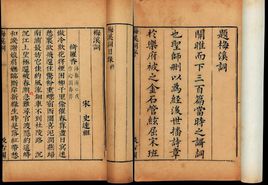 題梅溪詞
關雎而下三百篇當時之謌詞
也聖師删以爲經後世播詩章
於樂府被之金石管絃屈宋班
梅溪詞目錄終
梅溪詞
宋 史達祖
綺羅香
做冷欺花將煙困柳千里偷催春暮盡日冥迷
愁裏欲飛還住驚粉重蝶宿西園喜泥潤燕歸
南浦最妨它佳約風流鈿車不到杜陵路 沉
沉江上望極還被春潮急難尋官渡隱約遙峯
和淚謝娘眉嫵臨斷岸新綠生時是落紅帶愁